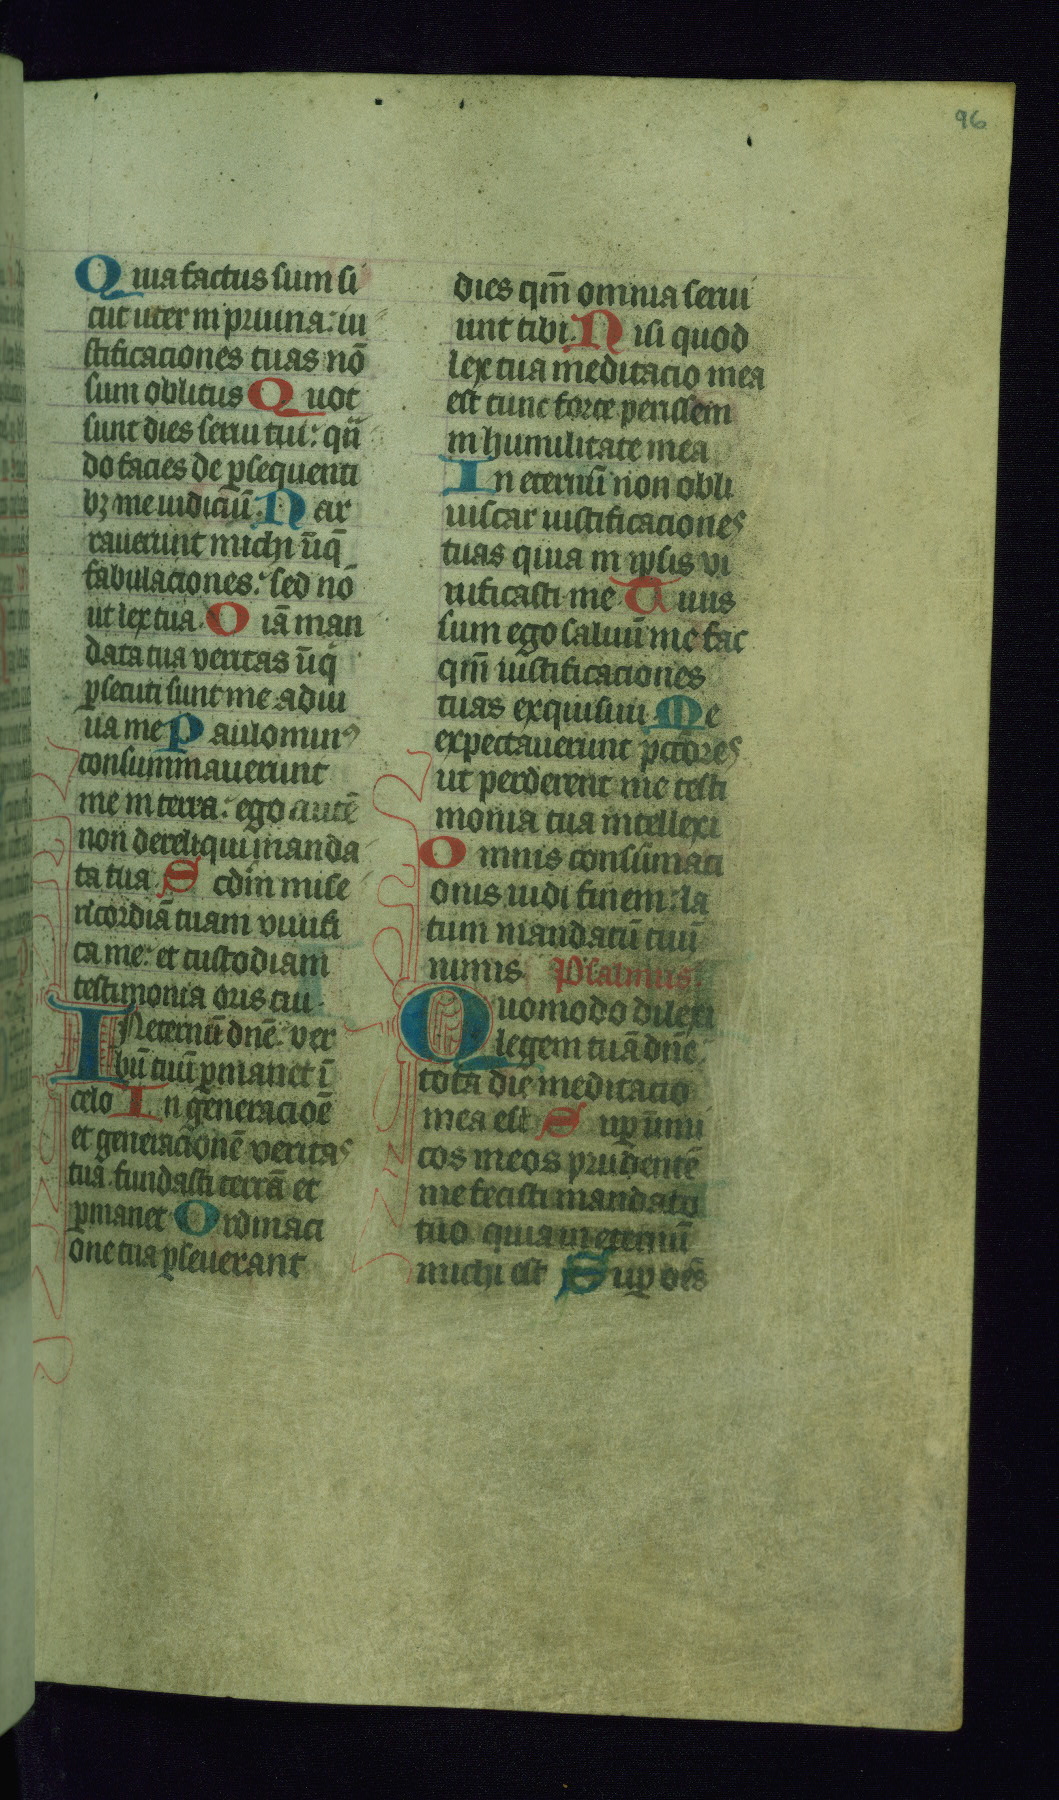 96
Quia factus sum si
cut uter in pruina: iu
stificaciones tuas nō
sum oblitus Quot
sunt dies serui tui: qn̄
do facies de ꝑsequenti
bꝫ me iudiciū. Nar
rauerunt michi iniq̄
fabulaciones: sed no
ut lex tua Oīa man
data tua veritas iniq̄
ꝑsecuti sunt me adiu
ua me Paulominꝰ
consummauerunt
me in terra: ego autē
non dereliqui manda
ta tua. Scdm mise
ricordiā tuam viuifi
ca me: et custodiam
testimonia oris tui.
In eternū dn̄e: ver
bū tuū ꝑmanet ī
celo In generacioē
et generacionē veritas
tua. fundasti terrā et
ꝑmanet Ordinaci
one tua ꝑseuerant
dies qm̄ omnia serui
unt tibi. Nisi quod
lex tua meditacio mea
est tunc forte perissem
in humilitate mea
In eternū non obli
uiscar iustificaciones
tuas quia in ip̄sis vi
uificasti me Tuus
sum ego saluū me fac
qm̄ iustificaciones
tuas exquisiui Me
expectauerunt pc̄tores
ut perderent me testi
monia tua intellexi
Omnis consūmaci
onis uidi finem: la
tum mandatū tuū
nimis. Psalmus.
Quomodo dilexi
legem tuā dn̄e
tota die meditacio
mea est Suꝑ inimi
cos meos prudentē
me fecisti mandato
tuo quia in eternū
michi est Suꝑ oēs